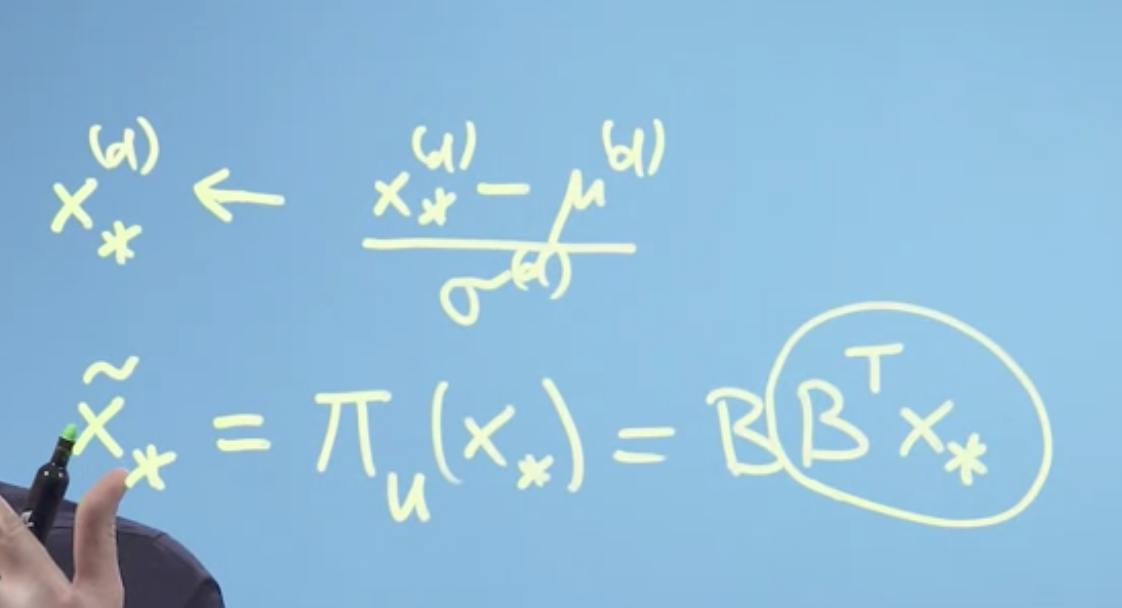 x_*^(d) ← (x_*^(d) − μ^(d)) / σ^(d)
x̃_* = π_u(x_*) = B B^T x_*